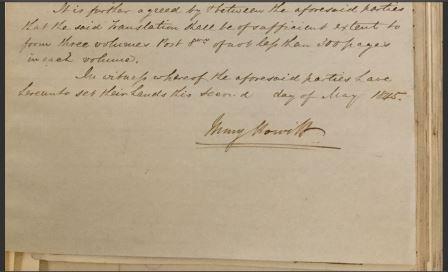 It is further agreed by & between the aforesaid parties
that the said Translation shall be of sufficient extent to
form three volumes Post 8vo of not less than 300 pages
in each volume.
In witness whereof the aforesaid parties have
hereunto set their hands this second day of May 1845.
Mary Howitt